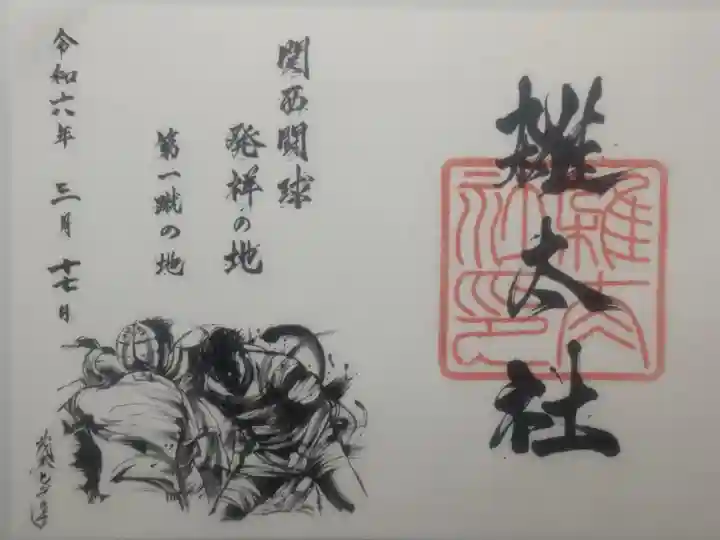 雑太社
雑太社印
関西闘球
発祥の地
第一蹴の地
令和六年 三月 十七日